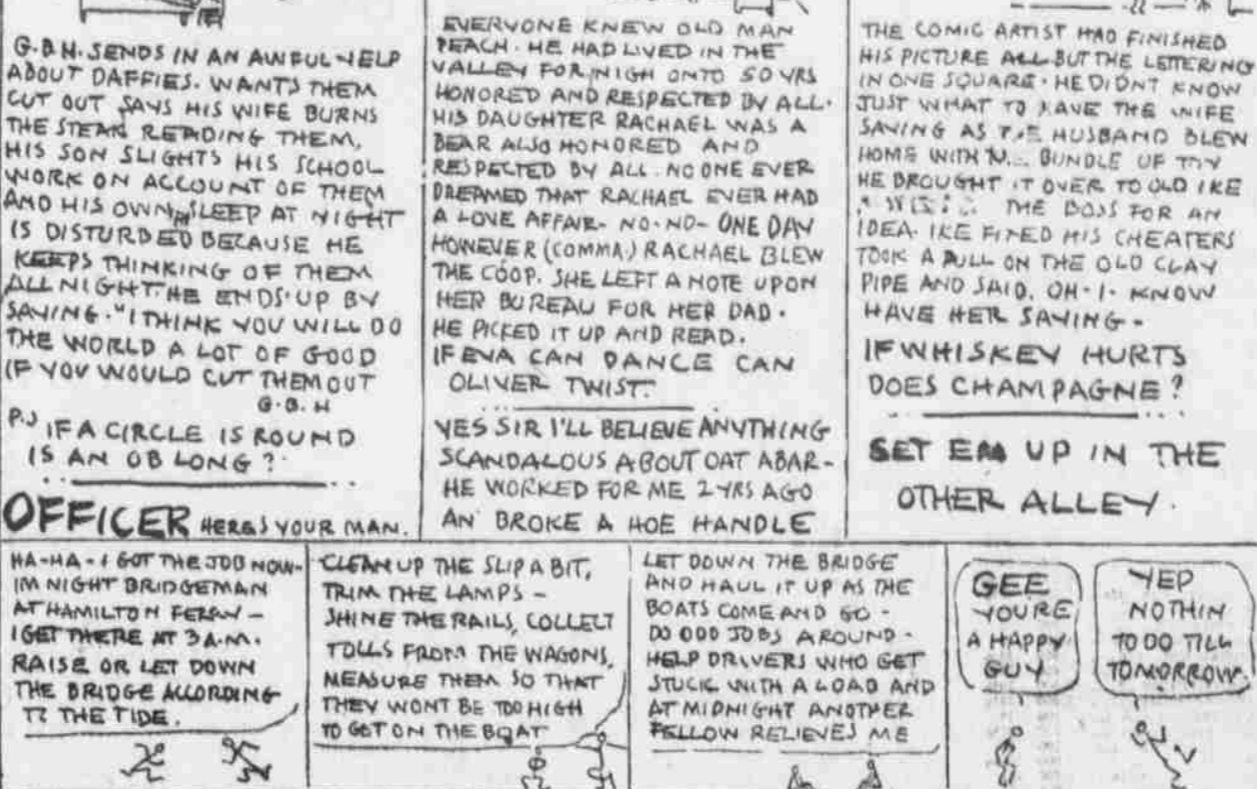 G.B.H. SENDS IN AN AWFUL YELP
ABOUT DAFFIES. WANTS THEM
CUT OUT SAYS HIS WIFE BURNS
THE STEAK READING THEM,
HIS SON SLIGHTS HIS SCHOOL
WORK ON ACCOUNT OF THEM
AND HIS OWN SLEEP AT NIGHT
IS DISTURBED BECAUSE HE
KEEPS THINKING OF THEM
ALL NIGHT. HE ENDS UP BY
SAYING. "I THINK YOU WILL DO
THE WORLD A LOT OF GOOD
IF YOU WOULD CUT THEM OUT
G.B.H
P.S IF A CIRCLE IS ROUND
IS AN OB LONG?
OFFICER HERES YOUR MAN.
EVERYONE KNEW OLD MAN
PEACH. HE HAD LIVED IN THE
VALLEY FOR NIGH ONTO 50 YRS
HONORED AND RESPECTED BY ALL.
HIS DAUGHTER RACHAEL WAS A
BEAR ALSO HONORED AND
RESPECTED BY ALL. NO ONE EVER
DREAMED THAT RACHAEL EVER HAD
A LOVE AFFAIR. NO-NO- ONE DAY
HOWEVER (COMMA) RACHAEL BLEW
THE COOP. SHE LEFT A NOTE UPON
HER BUREAU FOR HER DAD.
HE PICKED IT UP AND READ.
IF EVA CAN DANCE CAN
OLIVER TWIST.
YES SIR I'LL BELIEVE ANYTHING
SCANDALOUS ABOUT OAT ABAR-
HE WORKED FOR ME 2 YRS AGO
AN' BROKE A HOE HANDLE
THE COMIC ARTIST HAD FINISHED
HIS PICTURE ALL BUT THE LETTERING
IN ONE SQUARE. HE DIDNT KNOW
JUST WHAT TO HAVE THE WIFE
SAYING AS THE HUSBAND BLEW
HOME WITH BUNDLE OF
HE BROUGHT IT OVER TO OLD IKE
THE BOSS FOR AN
IDEA. IKE FIXED HIS CHEATERS
TOOK A PULL ON THE OLD CLAY
PIPE AND SAID, OH-I-KNOW
HAVE HER SAYING-
IF WHISKEY HURTS
DOES CHAMPAGNE?
SET EM UP IN THE
OTHER ALLEY.
HA-HA-I GOT THE JOB NOW-
IM NIGHT BRIDGEMAN
AT HAMILTON FERRY-
I GET THERE AT 3 A.M.
RAISE OR LET DOWN
THE BRIDGE ACCORDING
TO THE TIDE.
CLEAN UP THE SLIP A BIT,
TRIM THE LAMPS-
SHINE THE RAILS, COLLECT
TOLLS FROM THE WAGONS,
MEASURE THEM SO THAT
THEY WONT BE TOO HIGH
TO GET ON THE BOAT
LET DOWN THE BRIDGE
AND HAUL IT UP AS THE
BOATS COME AND GO-
DO ODD JOBS AROUND-
HELP DRIVERS WHO GET
STUCK WITH A LOAD AND
AT MIDNIGHT ANOTHER
FELLOW RELIEVES ME
GEE
YOURE
A HAPPY
GUY
YEP
NOTHIN
TO DO TILL
TOMORROW.